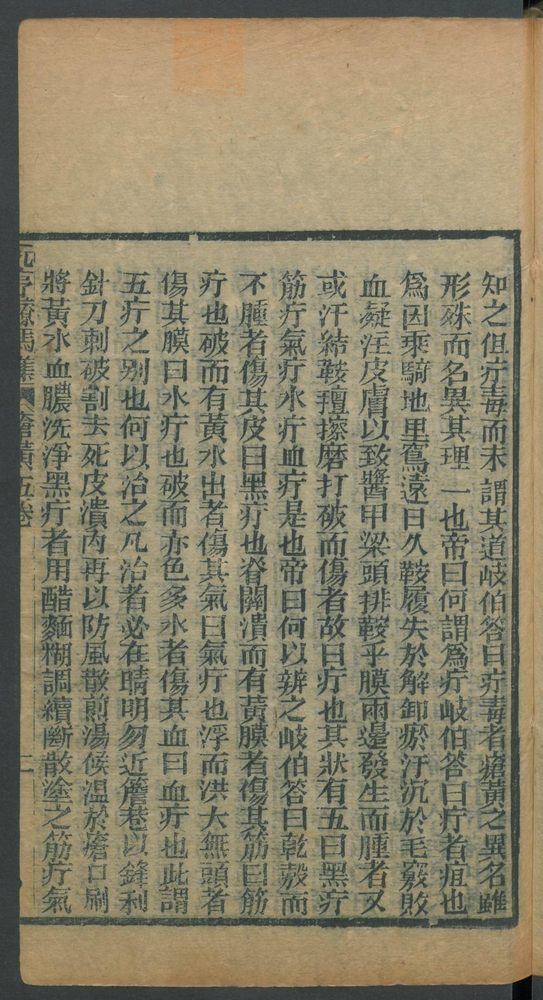 知之但疔毒而未謂其道岐伯答曰疔毒者瘡黃之異名雖
形殊而名異其理一也帝曰何謂爲疔岐伯答曰疔者疽也
爲因乘騎地里窵遠日久鞍履失於解卸瘀汗沉於毛竅敗
血凝注皮膚以致醬甲梁頭排鞍乎膜兩邊發生而腫者又
或汗結鞍羶擦磨打破而傷者故曰疔也其狀有五曰黑疔
筋疔氣疔水疔血疔是也帝曰何以辨之岐伯答曰乾殼而
不腫者傷其皮曰黑疔也脊闊潰而有黃膜者傷其筋曰筋
疔也破而有黃水出者傷其氣曰氣疔也浮而洪大無頭者
傷其膜曰水疔也破而赤色多水者傷其血曰血疔也此謂
五疔之别也何以治之凡治者必在晴明勿近簷巷以鋒利
針刀刺破割去死皮潰肉再以防風散煎湯候温於瘡口刷
將黃水血膿洗淨黑疔者用醋麵糊調續斷散塗之筋疔氣
元亨療馬集 瘡黃五卷 二